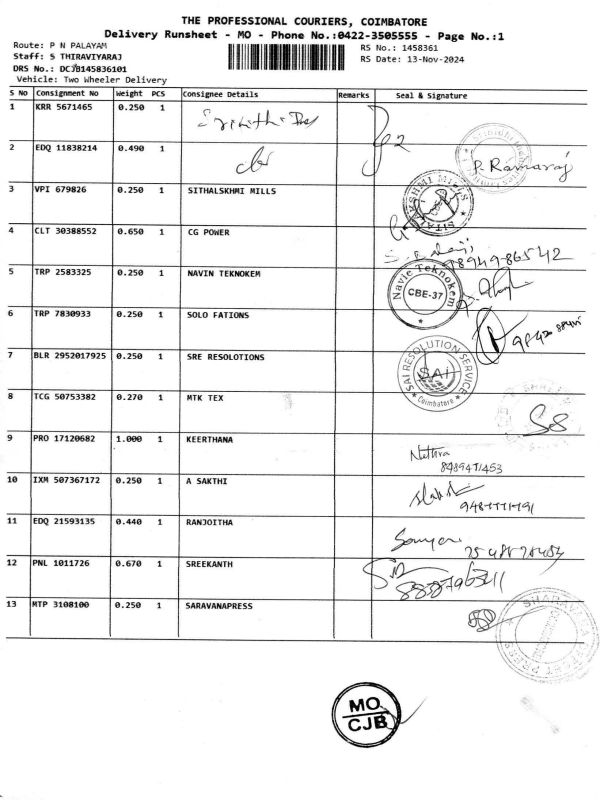 THE PROFESSIONAL COURIERS, COIMBATORE
Delivery Runsheet - MO - Phone No.:0422-3505555 - Page No.:1
Route: P N PALAYAM
RS No.: 1458361
Staff: S THIRAVIYARAJ
RS Date: 13-Nov-2024
DRS No.: DCJB145836101
Vehicle: Two Wheeler Delivery
S No Consignment No Weight PCS Consignee Details Remarks Seal & Signature
1 KRR 5671465 0.250 1
2 EDQ 11838214 0.490 1 P. Ramaraj
3 VPI 679826 0.250 1 SITHALSKHMI MILLS
SITALAKSHMI MILLS
4 CLT 30388552 0.650 1 CG POWER
98949-86542
5 TRP 2583325 0.250 1 NAVIN TEKNOKEM
Navie Teknokem
CBE-37
6 TRP 7830933 0.250 1 SOLO FATIONS
7 BLR 2952017925 0.250 1 SRE RESOLOTIONS
SAI RESOLUTION SERVICE
SAI
Coimbatore
8 TCG 50753382 0.270 1 MTK TEX
9 PRO 17120682 1.000 1 KEERTHANA
Nithra
8489471453
10 IXM 507367172 0.250 1 A SAKTHI
11 EDQ 21593135 0.440 1 RANJOITHA
12 PNL 1011726 0.670 1 SREEKANTH
13 MTP 3108100 0.250 1 SARAVANAPRESS
MO
CJB